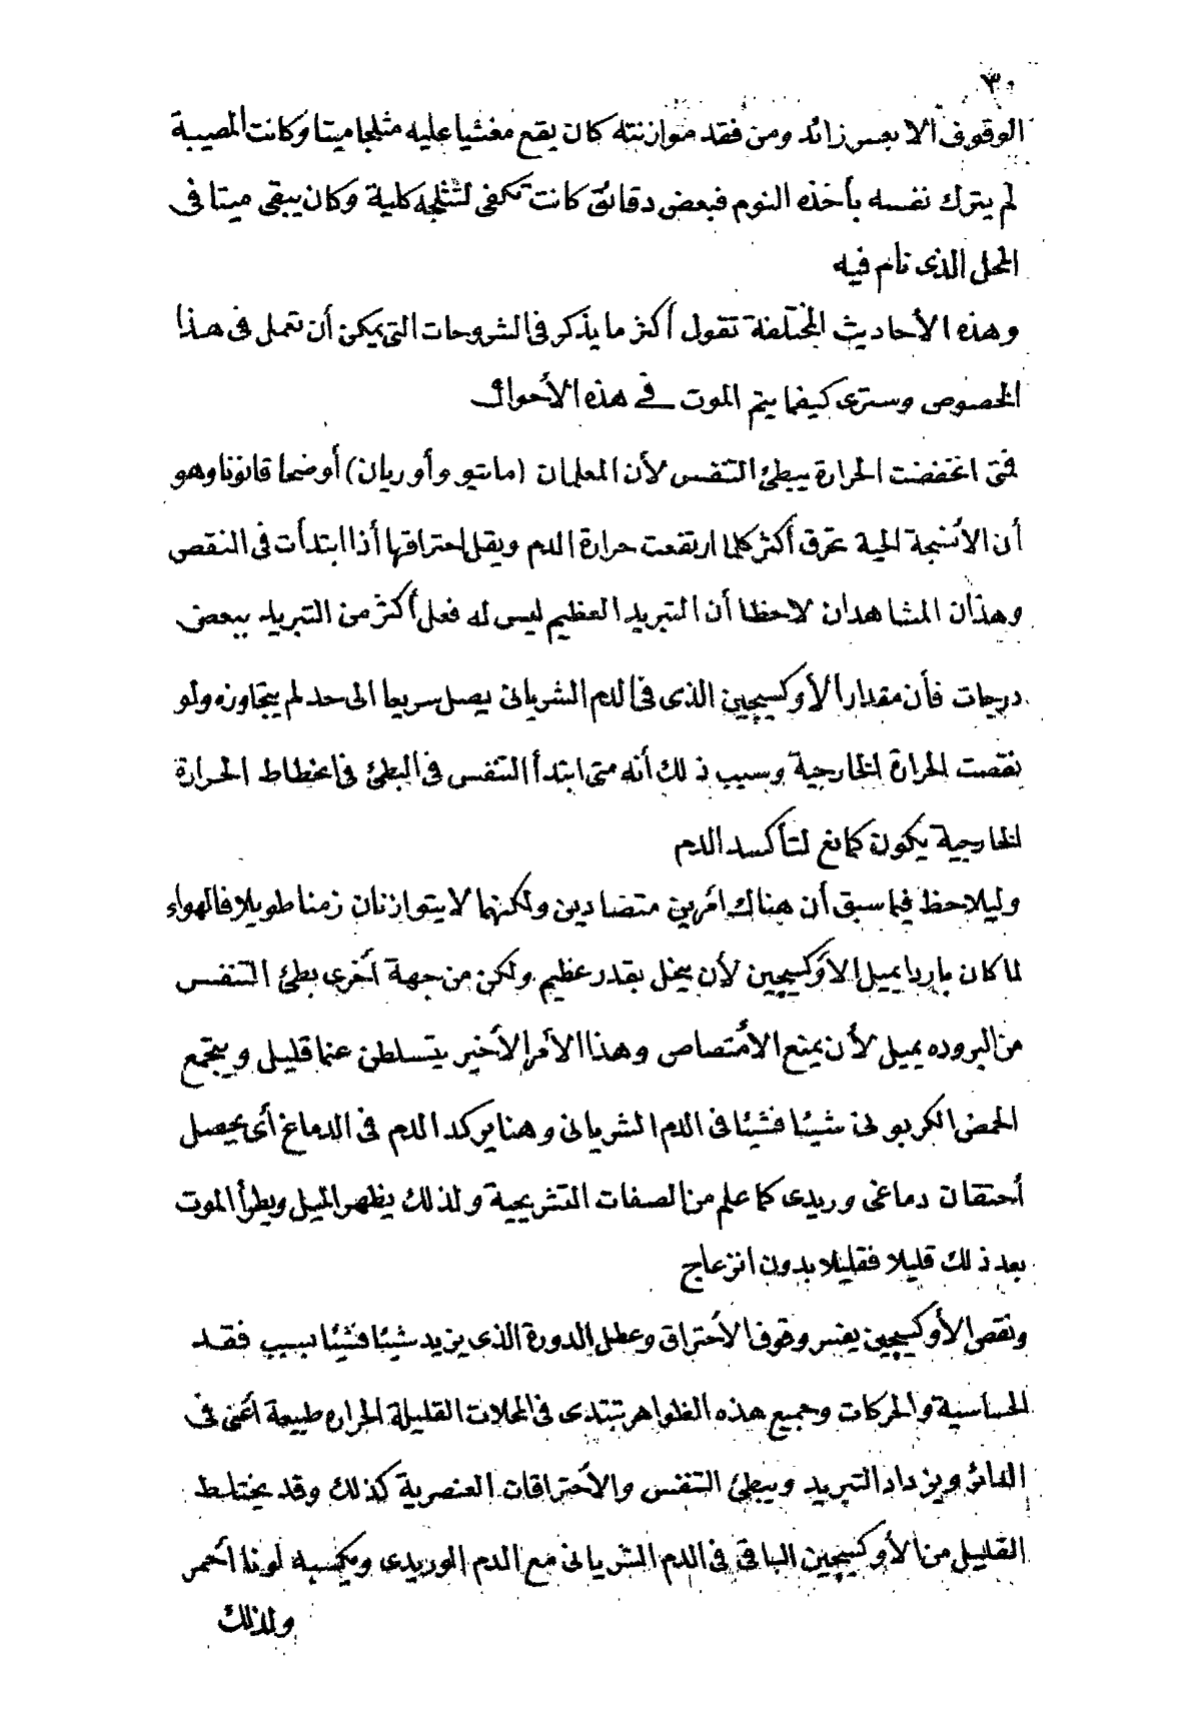 ٣٠
الوقوف الا بعسر زائد ومن فقد موازنته كان يقع مغشيا عليه مثلجا ميتا وكانت المصيبة
لم يترك نفسه يأخذه النوم فبعض دقائق كانت تكفى لتثلجه كلية وكان يبقى ميتا فى
المحل الذى نام فيه
وهذه الأحاديث المختلفة تقول أكثر ما يذكر فى الشروحات التى يمكن أن تعمل فى هذا
الخصوص وسترى كيفما يتم الموت فى هذه الأحوال
فمتى انخفضت الحرارة يبطئ التنفس لأن المعلمان (ماتيو وأوريان) أوضحا قانونا وهو
أن الأنسجة الحية تحرق أكثر كلما ارتفعت حرارة الدم ويقل احتراقها أذا ابتدأت فى النقص
وهذان المشاهدان لاحظا أن التبريد العظيم ليس له فعل أكثر من التبريد ببعض
درجات فأن مقدار الأوكسيجين الذى فى الدم الشريانى يصل سريعا الى حد لم يتجاوزه ولو
نقصت الحرارة الخارجية وسبب ذلك أنه متى ابتدأ التنفس فى البطئ فى انحطاط الحرارة
الخارجية يكون كمانع لتأكسد الدم
وليلاحظ فيما سبق أن هناك أمرين متضادين ولكنهما لا يتوازنان زمنا طويلا فالهواء
لما كان باردا يميل الأوكسيجين لأن يخل بقدر عظيم ولكن من جهة أخرى بطئ التنفس
من البروده يميل لأن يمنع الأمتصاص وهذا الأمر الأخير يتسلطن عنما قليل ويتجمع
الحمض الكربونى شيئا فشيئا فى الدم الشريانى وهنا يركد الدم فى الدماغ أى يحصل
أحتقان دماغى وريدى كما علم من الصفات التشريحية ولذلك يظهر الميل ويطرأ الموت
بعد ذلك قليلا فقليلا بدون انزعاج
ونقص الأوكسيجين يفسر وقوف الأحتراق وعطل الدورة الذى يزيد شيئا فشيئا بسبب فقد
الحساسية والحركات وجميع هذه الظواهر تبتدى فى المحلات القليلة الحراره طبيعة أعنى فى
الدائر ويزداد التبريد ويبطئ التنفس والأحتراقات العنصرية كذلك وقد يختلط
القليل من الأوكسيجين الباقى فى الدم الشريانى مع الدم الوريدى ويكسبه لونا أحمر
ولذلك